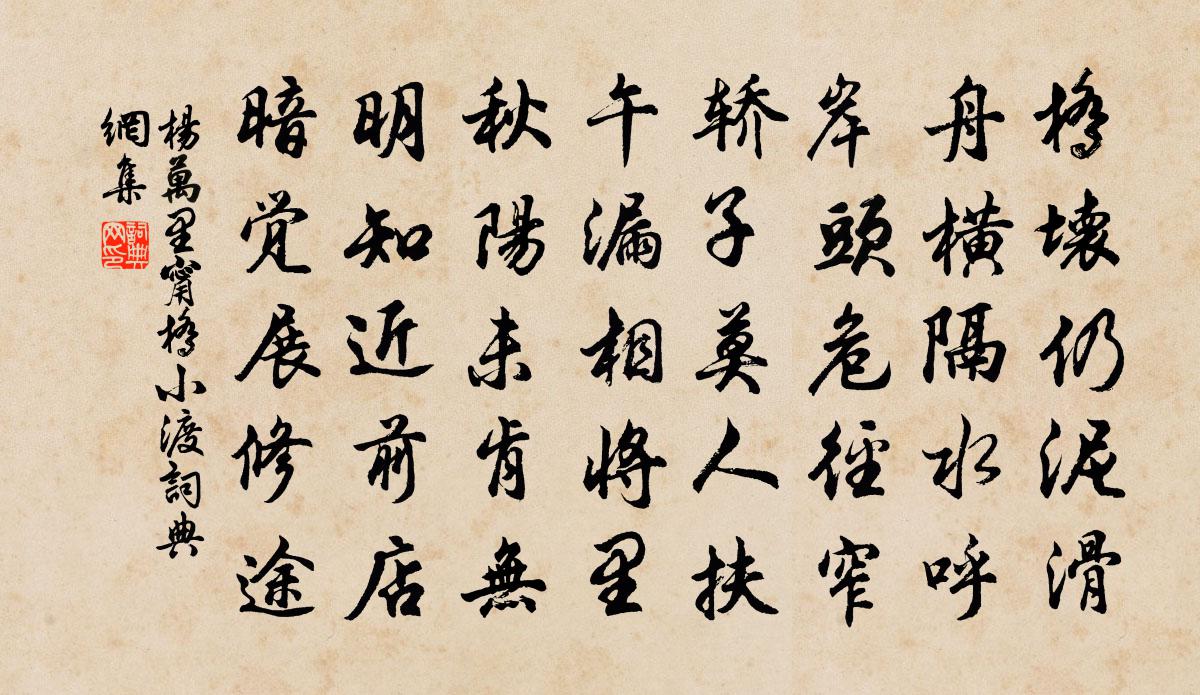 橋壊仍泥滑
舟橫隔水呼
岸頭危徑窄
轿子莫人扶
午漏相將里
秋陽未肯無
明知近前店
暗覚展修途
楊萬里甯橋小渡詞典
網集
詞典
网印